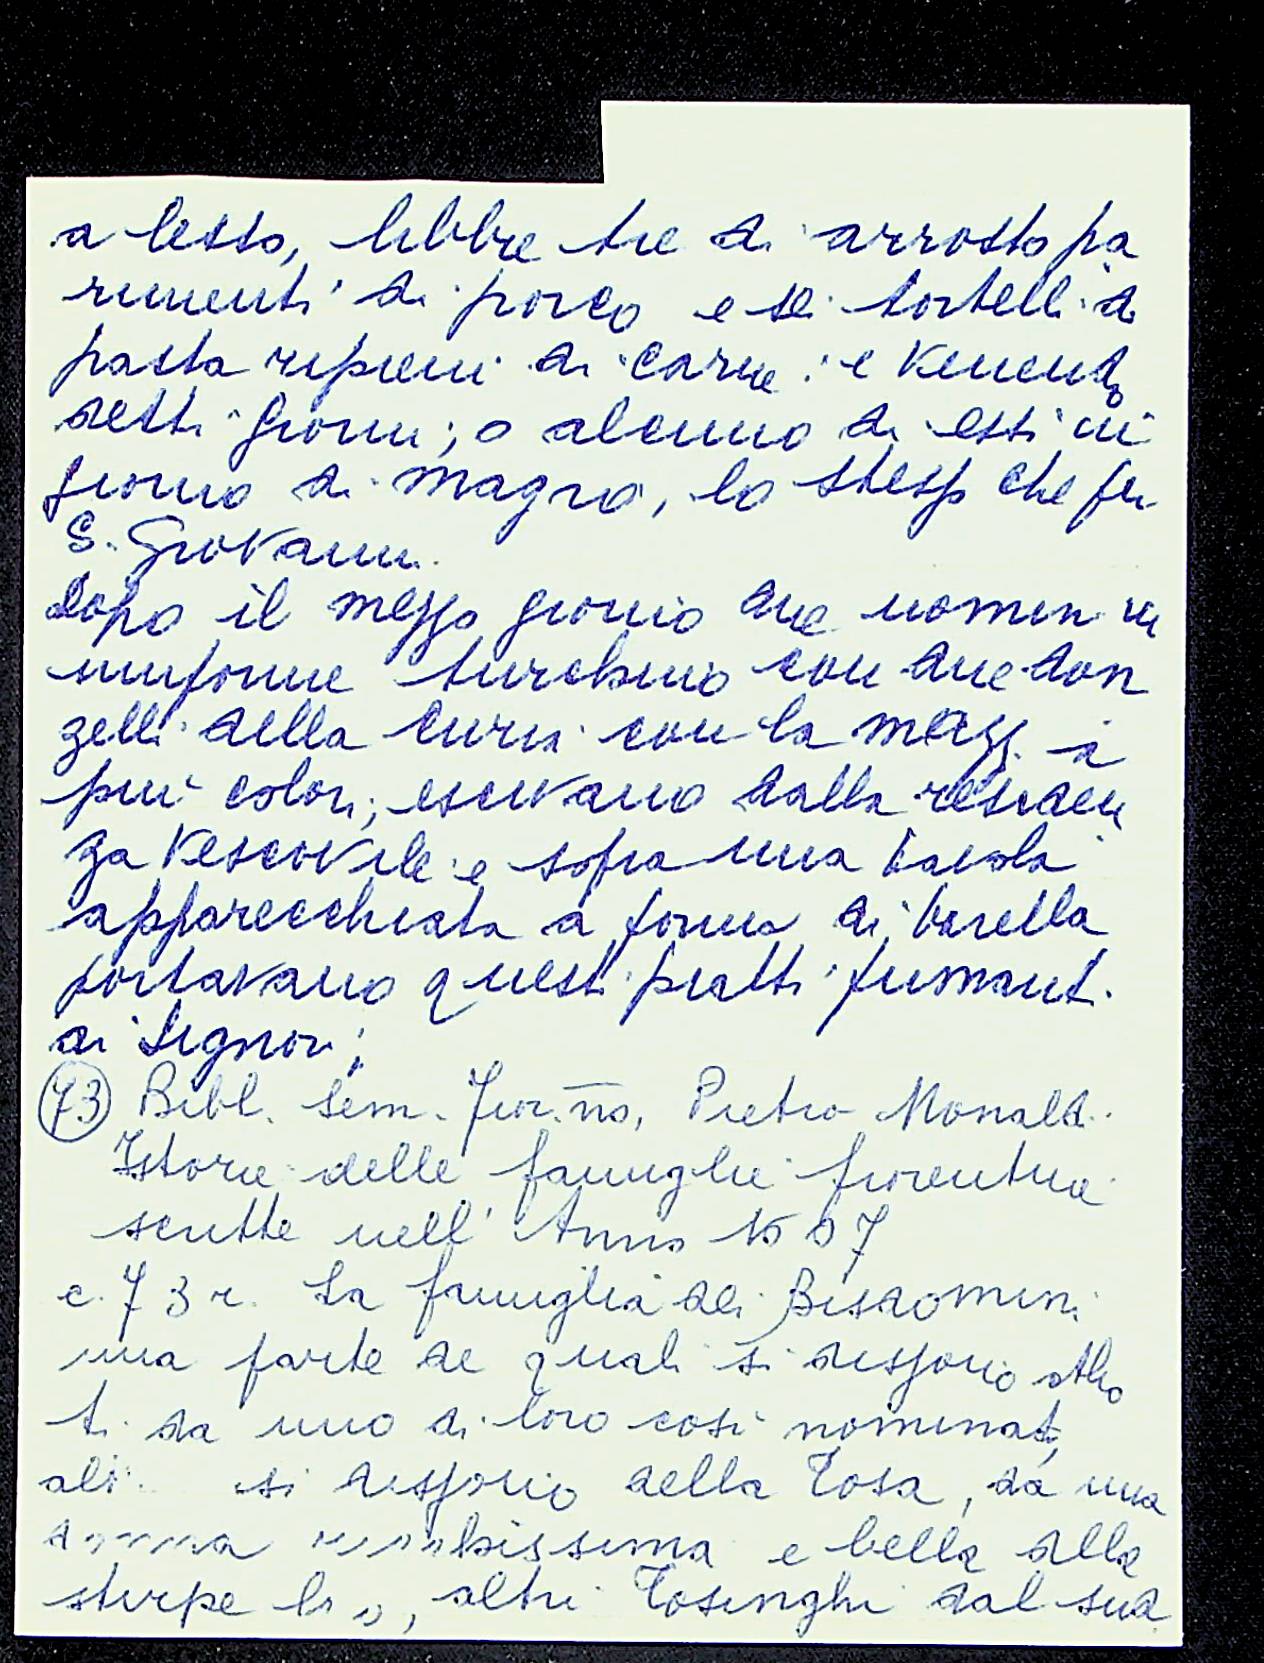 a lesso, libbre tre di arrosto pa
rimenti di porco e sei tortelli di
pasta ripieni di carne: e venendo
detti giorni, o alcuno di essi in
giorno di magro, lo stesso che per
S. Giovanni.
Dopo il mezzo giorno due uomini in
uniforme turchino con due don
zelli della Curia con la mazza a
più colori, escivano dalla residen
za Vescovile e sopra una tavola
apparecchiata a forma di barella
portavano questi piatti fumanti
ai Signori;
(73) Bibl. Sem. Fior.no, Pietro Monaldi
Istorie delle famiglie fiorentine
scritte nell' Anno 1607
c. 73 r. La famiglia dei Bisdomini
una parte de quali si dissono Alio
ti da uno di loro così nominato,
altri si dissono della Tosa, da una
donna nobilissima e bella alla
stirpe loro, altri Tosinghi dal sud